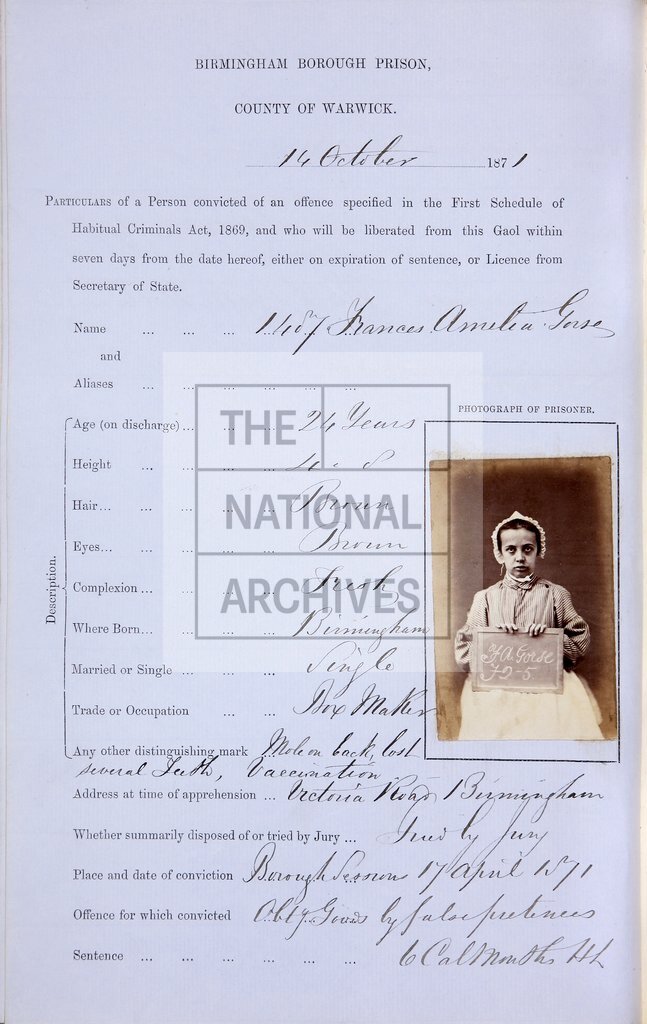 BIRMINGHAM BOROUGH PRISON,
COUNTY OF WARWICK.
14 October 1871
PARTICULARS of a Person convicted of an offence specified in the First Schedule of
Habitual Criminals Act, 1869, and who will be liberated from this Gaol within
seven days from the date hereof, either on expiration of sentence, or Licence from
Secretary of State.
Name ... ... ... 1407 Frances Amelia Gorse
and
Aliases ... ... ... ... ... ...
PHOTOGRAPH OF PRISONER.
Description.
Age (on discharge) ... ... ... 24 Years
Height ... ... ... 4 - 8
Hair ... ... ... ... Brown
Eyes ... ... ... ... Brown
Complexion ... ... ... ... Fresh
Where Born ... ... ... ... Birmingham
Married or Single ... ... ... Single
Trade or Occupation ... ... Box Maker
Any other distinguishing mark Mole on back, lost
several Teeth, Vaccination
Address at time of apprehension ... Victoria Road, Birmingham
Whether summarily disposed of or tried by Jury ... Tried by Jury
Place and date of conviction Borough Sessions 17 April 1871
Offence for which convicted Obtg Goods by false pretences
Sentence ... ... ... ... ... ... 6 Cal Months HL
F.A. Gorse
7-2-5
THE
NATIONAL
ARCHIVES